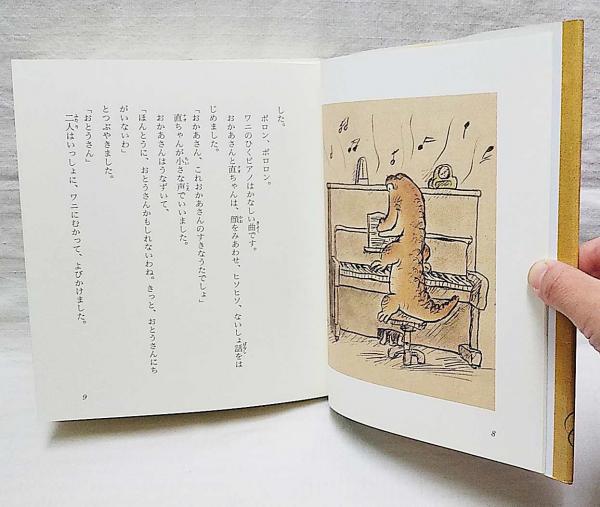 した。
ポロン、ポロロン。
ワニのひくピアノはかなしい曲です。
おかあさんと直ちゃんは、顔をみあわせ、ヒソヒソ、ないしょ話をは
じめました。
「おかあさん、これおかあさんのすきなうたでしょ」
直ちゃんが小さな声でいいました。
おかあさんはうなずいて、
「ほんとうに、おとうさんかもしれないわね。きっと、おとうさんにち
がいないわ」
とつぶやきました。
「おとうさん」
二人はいっしょに、ワニにむかって、よびかけました。
9
8